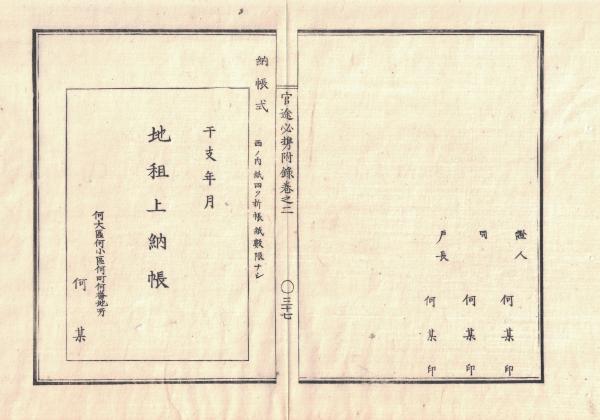 證人 何某印
同 何某印
戸長 何某印
官途必携附錄卷之二 〇三十七
納帳式
西ノ内紙四ツ折帳紙數限ナシ
干支年月
地租上納帳
何大區何小區何町何番地所
何某